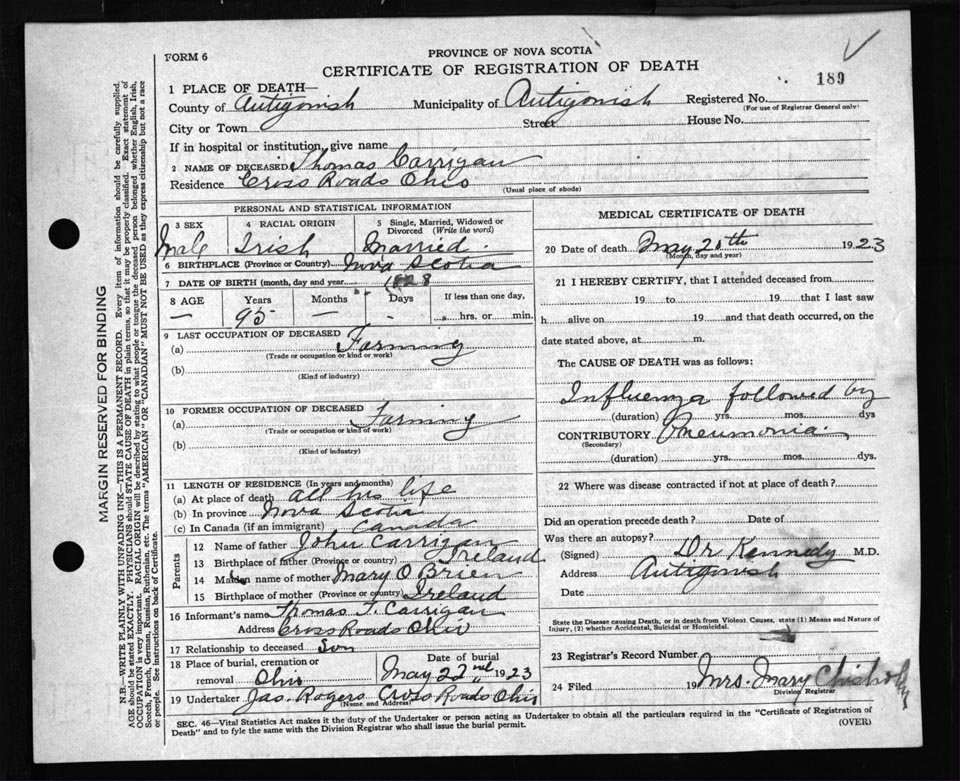 FORM 6
PROVINCE OF NOVA SCOTIA
CERTIFICATE OF REGISTRATION OF DEATH
189
1 PLACE OF DEATH—
County of Antigonish Municipality of Antigonish Registered No.
(For use of Registrar General only)
City or Town Street House No.
If in hospital or institution, give name
2 NAME OF DECEASED Thomas Carrigan
Residence Cross Roads Ohio
(Usual place of abode)
PERSONAL AND STATISTICAL INFORMATION
3 SEX 4 RACIAL ORIGIN 5 Single, Married, Widowed or Divorced (Write the word)
Male Irish Married
6 BIRTHPLACE (Province or Country) Nova Scotia
7 DATE OF BIRTH (month, day and year) 1828
8 AGE Years Months Days If less than one day,
— 95 — - hrs. or min.
9 LAST OCCUPATION OF DECEASED
(a) Farming
(Trade or occupation or kind of work)
(b)
(Kind of industry)
10 FORMER OCCUPATION OF DECEASED
(a) Farming
(Trade or occupation or kind of work)
(b)
(Kind of industry)
11 LENGTH OF RESIDENCE (In years and months)
(a) At place of death all his life
(b) In province Nova Scotia
(c) In Canada (if an immigrant) Canada
Parents
12 Name of father John Carrigan
13 Birthplace of father (Province or country) Ireland
14 Maiden name of mother Mary O Brien
15 Birthplace of mother (Province or country) Ireland
16 Informant's name Thomas F. Carrigan
Address Cross Roads Ohio
17 Relationship to deceased Son
18 Place of burial, cremation or removal Ohio Date of burial May 22nd 1923
19 Undertaker Jas. Rogers Cross Roads Ohio
(Name and Address)
MEDICAL CERTIFICATE OF DEATH
20 Date of death May 20th 1923
(Month, day and year)
21 I HEREBY CERTIFY, that I attended deceased from
19 to 19 that I last saw
h alive on 19 and that death occurred, on the
date stated above, at m.
The CAUSE OF DEATH was as follows:
Influenza followed by
(duration) yrs. mos. dys
CONTRIBUTORY Pneumonia.
(Secondary)
(duration) yrs. mos. dys.
22 Where was disease contracted if not at place of death?
Did an operation precede death? Date of
Was there an autopsy?
(Signed) Dr Kennedy M.D.
Address Antigonish
Date
State the Disease causing Death, or in death from Violent Causes, state (1) Means and Nature of Injury, (2) whether Accidental, Suicidal or Homicidal.
23 Registrar's Record Number
24 Filed 19 Mrs. Mary Chisholm
Division Registrar
SEC. 46—Vital Statistics Act makes it the duty of the Undertaker or person acting as Undertaker to obtain all the particulars required in the "Certificate of Registration of Death" and to fyle the same with the Division Registrar who shall issue the burial permit.
(OVER)
MARGIN RESERVED FOR BINDING
N.B.—WRITE PLAINLY WITH UNFADING INK—THIS IS A PERMANENT RECORD. Every item of information should be carefully supplied.
AGE should be stated EXACTLY. PHYSICIANS should STATE CAUSE OF DEATH in plain terms, so that it may be properly classified. Exact statement of
OCCUPATION is very important. RACIAL ORIGIN will be described by stating to what people or tongue the deceased person belonged whether English, Irish,
Scotch, French, German, Russian, Ruthenian, etc. The terms "AMERICAN" OR "CANADIAN" MUST NOT BE USED as they express citizenship but not a race
or people. See instructions on back of Certificate.